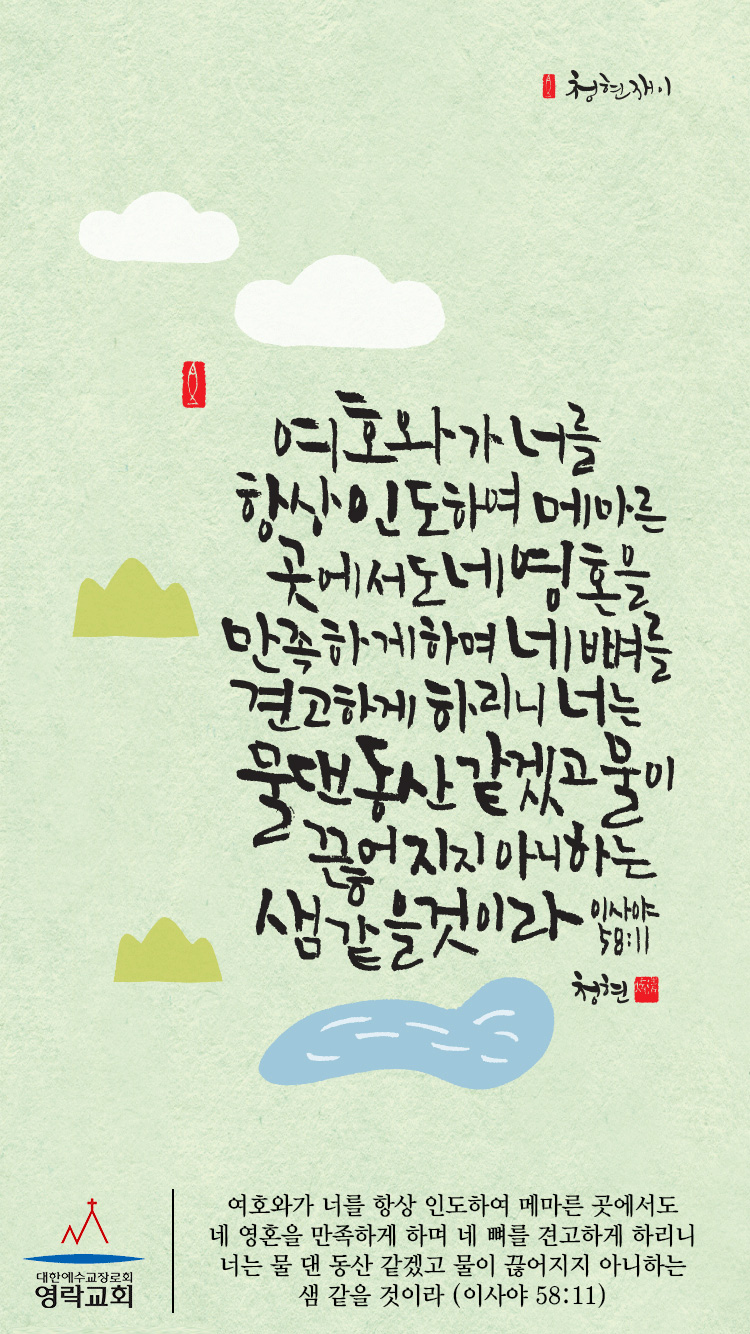 청현재이
여호와가 너를
항상 인도하여 메마른
곳에서도 네 영혼을
만족하게 하며 네 뼈를
견고하게 하리니 너는
물 댄 동산 같겠고 물이
끊어지지 아니하는
샘 같을 것이라 이사야
58:11
청현
대한예수교장로회
영락교회
여호와가 너를 항상 인도하여 메마른 곳에서도
네 영혼을 만족하게 하며 네 뼈를 견고하게 하리니
너는 물 댄 동산 같겠고 물이 끊어지지 아니하는
샘 같을 것이라 (이사야 58:11)